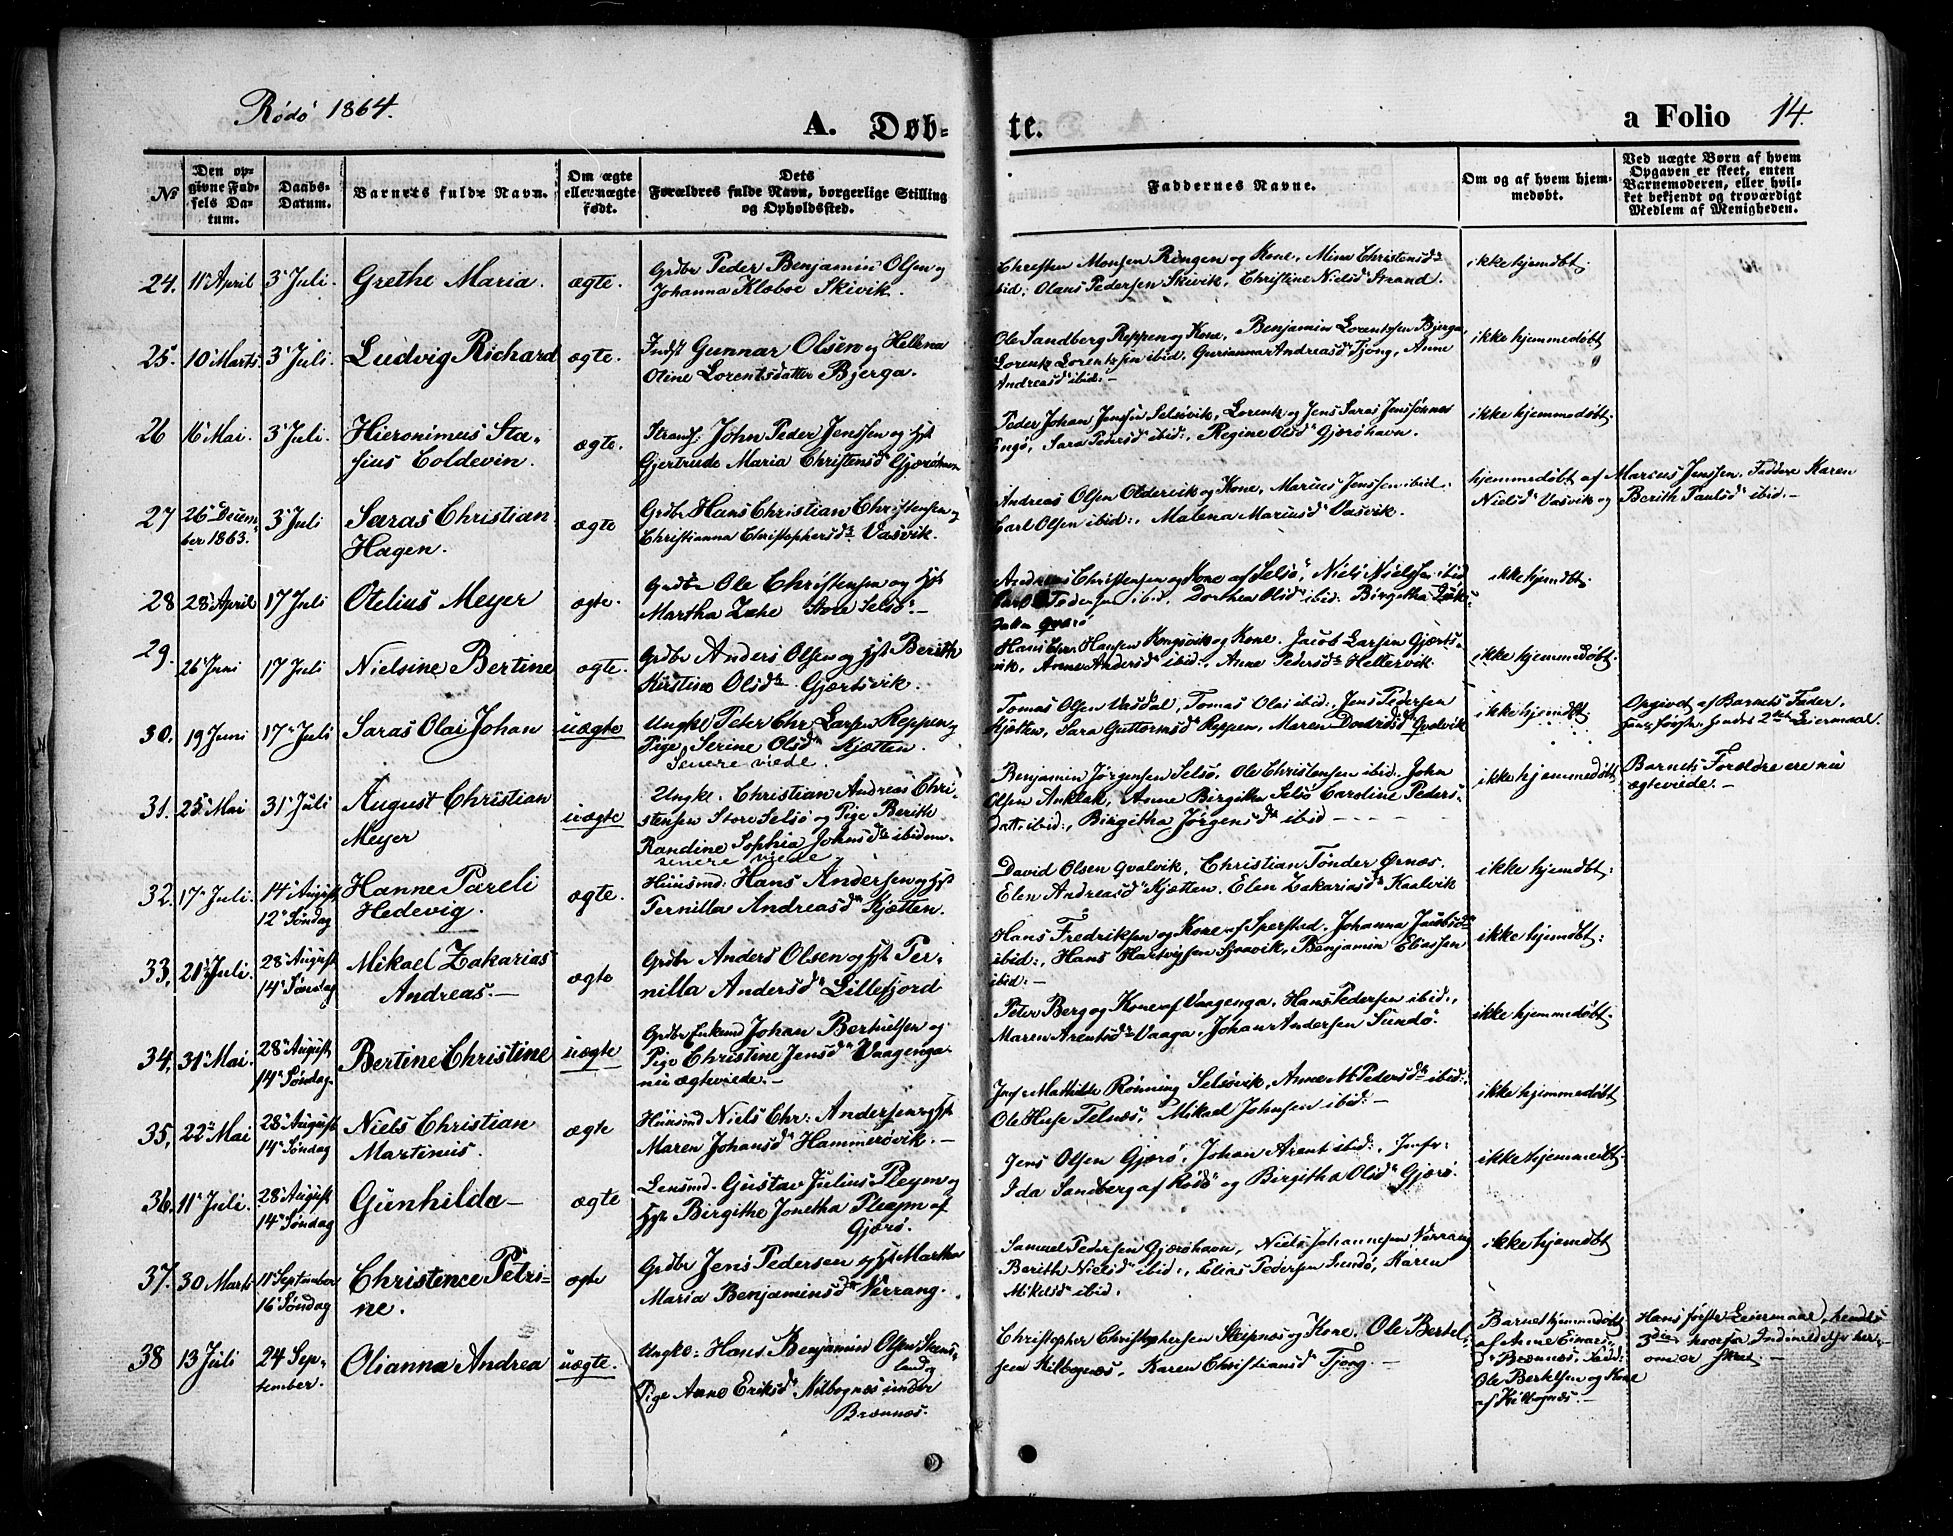 Rödö 1864.
A. Døb-
te.
a Folio 14.
No
Den op-
givne Fød-
sels Da-
tum.
Daabs-
Datum.
Barnets fulde Navn.
Om ægte
eller uægte
født.
Dets
Forældres fulde Navn, borgerlige Stilling
og Opholdssted.
Faddernes Navne.
Om og af hvem hjem-
medøbt.
Ved uægte Børn af hvem
Opgaven er skeet, enten
Barnemoderen, eller hvil-
ket bekjendt og troværdigt
Medlem af Menigheden.
24. 11 April 3 Juli. Grethe Maria. ægte.
Grdbr Peder Benjamin Olsen og
Johanna Kloboe Skivik.
Christen Monsen Ringen og Kone, Mina Christensd
ibid: Olaus Pedersen Skivik, Christine Nielsd Strand.
ikke hjemdøbt.
25. 10 Marts. 3 Juli. Ludvig Richard ægte.
Indst Gunnar Olsen og Hellena
Oline Lorentsdatter Bjerga.
Ole Sandberg Reppen og Kone, Benjamin Lorentssen Bjerga,
Lorentz Lorentssen ibid, Gurianna Andreasd Tjong, Anne
Andreasd ibid:
ikke hjemmedøbt
26 16 Mai. 3 Juli. Hieronimus Sta-
sius Coldevin. ægte.
Strands: John Peder Jenssen og Hst
Gjertrude Maria Christensd Gjæröhavn
Peder Johan Jenssen Selsövik, Lorentz og Jens Saras Jenssönner
Engö, Sara Pedersd ibid:, Regine Olsd Gjæröhavn.
ikke hjemmedøbt.
27 26 Decem-
ber 1863. 3 Juli Saras Christian
Hagen. ægte
Grdbr Hans Christian Christensen og
Christianna Christophersd Vasvik.
Andreas Olsen Oldervik og Kone, Marius Jenssen ibid.
Carl Olsen ibid:, Malena Mariusd Vasvik.
hjemmedøbt af Marcus Jenssen. Faddere Karen
Nielsd Vasvik og Berith Paulsd ibid.
28 28 April 17 Juli Otelius Meyer ægte.
Grdbr Ole Christensen og Hst
Martha Zake Store Selsö.
Andreas Christensen og Kone af Selsö, Niels Nielssen ibid
Carl Pedersen ibid, Dorthea Olsd ibid: Birgitha
ikke hjemdøbt.
29. 26 Juni 17 Juli Nielsine Bertine ægte.
Grdbr Anders Olsen og Hst Berith
Kirstine Olsd Gjærtsvik.
Hans Chr. Hansen Kongsvik og Kone, Jacob Larsen Gjærts-
vik, Anne Andersd ibid:, Anne Pedersd Hellervik.
ikke hjemmedøbt.
30. 19 Juni 17 Juli Saras Olai Johan uægte
Ungkl. Peter Chr. Larsen Reppen og
Pige Serine Olsd Kjøtten.
Senere viede.
Tomas Olsen Vasdal, Tomas Olai ibid:, Jens Pedersen
Kjøtten, Sara Guttormsd Reppen, Maren Qvalvik
ikke hjemdøbt
Opgivet af Barnets Fader,
hans første, hendes 2det Leiermaal.
31. 25 Mai 31 Juli August Christian
Meyer uægte
Ungkl. Christian Andreas Chri-
stensen Store Selsö og Pige Berith
Randine Sophia Johnsd ibidem
senere viede
Benjamin Jörgensen Selsö, Ole Christensen ibid. John
Olsen Anklak, Anne Birgitha Selsö Caroline Peders-
datt: ibid:, Birgitha Jörgensd ibid
ikke hjemmedøbt
Barnets Forældre ere nu
ægteviede.
32. 17 Juli. 14 August
12 Söndag Hanne Pareli
Hedevig. ægte.
Huusmd: Hans Andersen og Hst
Pernilla Andreasd Kjøtten.
David Olsen Qvalvik, Christian Tönder Örnæs.
Elen Andreasd Kjøtten, Elen Zakariasd Kaalvik
ikke hjemdøbt:
33. 21 Juli. 28 August
14 Söndag Mikael Zakarias
Andreas. ægte
Grdbr Anders Olsen og Hst Per-
nilla Andersd Lillefjord
Hans Fredriksen og Kone af Spersted, Johanna Jacobsd
ibid:, Hans Hartvigsen Sjoavik, Benjamin Eliassen
ibid:
ikke hjemdøbt:
34. 31 Mai. 28 August
14 Söndag. Bertine Christine uægte
Grdbr Enkemd Johan Bertielsen og
Pige Christine Jensd Vaagenga
nu ægteviede.
Peter Berg og Kone af Vaagenga, Hans Pedersen ibid:,
Maren Arentsd Vaaga, Johan Andersen Sundö.
ikke hjemmedøbt.
35. 22 Mai 28 August
14 Söndag Niels Christian
Martinus. ægte
Huusmd Niels Chr: Andersen og Hst
Maren Johansd Hammerövik.
Jnfr Mathilde Rönning Selsövik, Anne M. Pedersd ibid:,
Ole Huse Telnæs, Mikael Johnsen ibid:
ikke hjemmedøbt
36. 11 Juli. 28 August
14 Söndag Gunhilda ægte
Lensmd. Gustav Julius Pleym og
Hst Birgithe Jonetha Pleym af
Gjærö.
Jens Olsen Gjærö, Johan Arent ibid:, Jnfr:
Ida Sandberg af Rödö og Birgitha Olsd Gjærö.
ikke hjemmedöbt.
37. 30 Marts 11 September
16 Söndag Christence Petri-
ne. ægte
Grdbr Jens Pedersen og Hst Martha
Maria Benjaminsd Værrang.
Samuel Pedersen Gjæröhavn, Niels Johannesen Værrang
Berith Nielsd ibid:, Elias Pedersen Sundö, Karen
Mikelsd ibid.
ikke hjemdøbt
38 13 Juli 24 Sep-
tember. Olianna Andrea uægte.
Ungkl: Hans Benjamin Olsen Skens-
land og
Pige Anne Eriksd Kilbognæs under
Brænnæs.
Christopher Christophersen Sleipnæs og Kone. Ole Bertel-
sen Kilbognæs. Karen Christiansd Tjong.
Barnet hjemmedøbt
af Anne Einars-
d Brænnæs. Fadd:
Ole Bertelsen og Kone
af Kilbognæs.
Hans første Leiermaal, hendes
3die hvorfor Indmeldelse her-
om er skeet